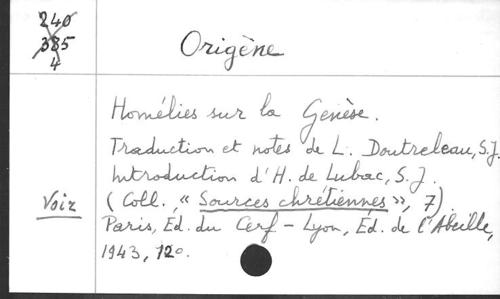 240
385
4
Origène
Homélies sur la Genèse.
Traduction et notes de L. Doutreleau, S.J.
Introduction d'H. de Lubac, S.J.
Voir
(Coll. « Sources chrétiennes », 7)
Paris, Ed. du Cerf - Lyon, Éd. de l'Abeille,
1943, 12o.